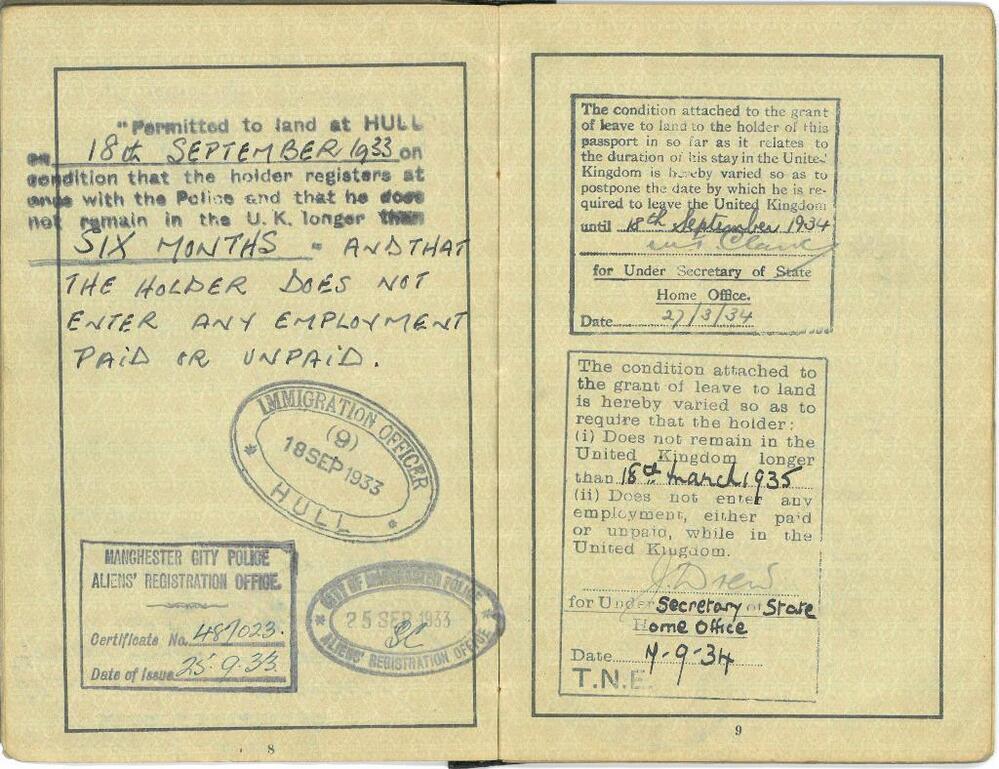 "Permitted to land at HULL
on 18th SEPTEMBER 1933 on
condition that the holder registers at
once with the Police and that he does
not remain in the U.K. longer than
SIX MONTHS " AND THAT
THE HOLDER DOES NOT
ENTER ANY EMPLOYMENT
PAID OR UNPAID.
IMMIGRATION OFFICER
(9)
18 SEP 1933
* HULL *
MANCHESTER CITY POLICE
ALIENS' REGISTRATION OFFICE.
Certificate No. 487023.
Date of Issue 25.9.33.
CITY OF MANCHESTER POLICE
25 SEP 1933
ALIENS' REGISTRATION OFFICE
8
The condition attached to the grant
of leave to land to the holder of this
passport in so far as it relates to
the duration of his stay in the United
Kingdom is hereby varied so as to
postpone the date by which he is re-
quired to leave the United Kingdom
until 18th September 1934
Clark
for Under Secretary of State
Home Office.
Date 27/3/34
The condition attached to
the grant of leave to land
is hereby varied so as to
require that the holder:
(i) Does not remain in the
United Kingdom longer
than 18th march 1935
(ii) Does not enter any
employment, either paid
or unpaid, while in the
United Kingdom.
J. Drew
for Under Secretary of State
Home Office
Date -9-34
T.N.E.
9